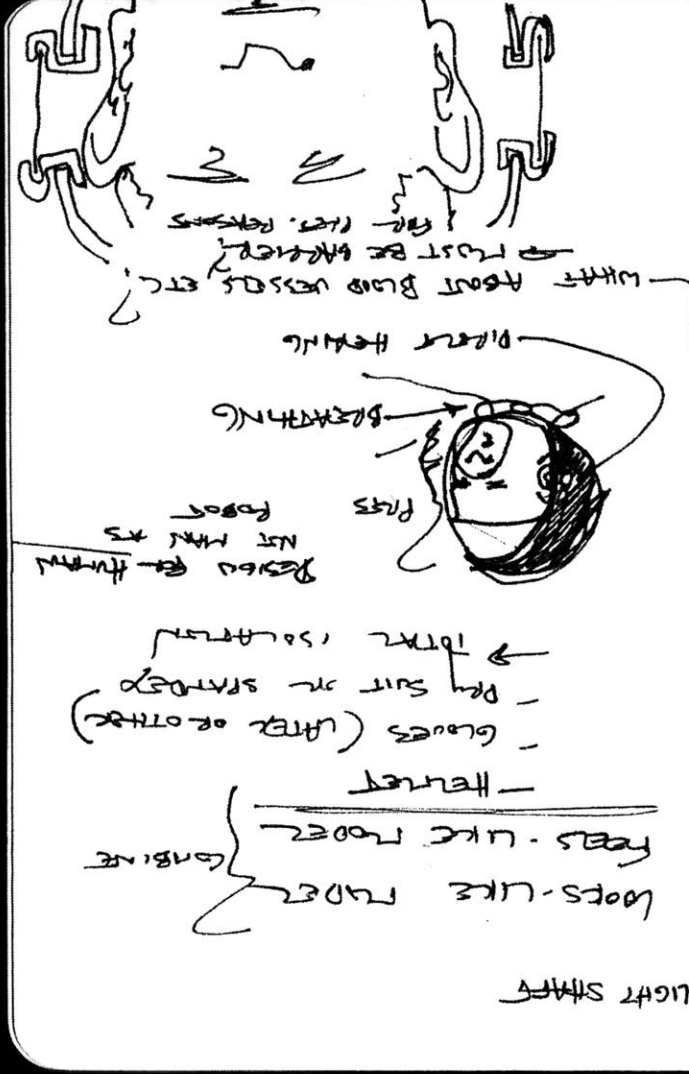 LIGHT SHAFT
LOOKS-LIKE MODEL
FEELS-LIKE MODEL
COMBINE
- HELMET
- GLOVES (LATEX OR OTHER)
- DRY SUIT OR SPANDEX
→ TOTAL ISOLATION
DESIGN FOR HUMAN
NOT MAN AS
ROBOT
BREATHING
DIRECT HEARING
- WHAT ABOUT BLOOD VESSELS, ETC?
→ MUST BE BARRIER,
FOR PRES. REASONS